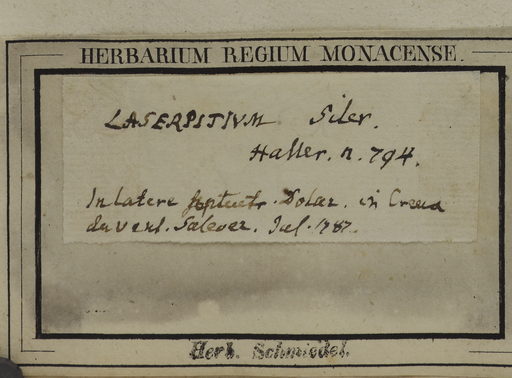 HERBARIUM REGIUM MONACENSE.
LASERPITIUM Siler.
Haller. n. 794.
In latere Dolaz. in Creux
du vent. Salever. Jul. 1787.
Herb. Schmiedel.